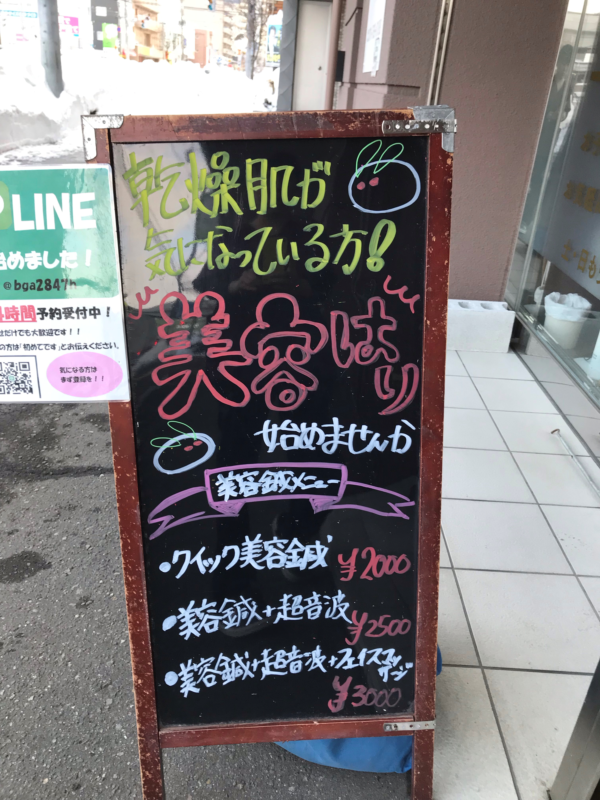 LINE
始めました！
@bga2847h
時間予約受付中！
だけでも大歓迎です！！
の方は「初めてです」とお伝えください。
気になる方は
まず登録を！！
乾燥肌が
気になっている方！！
美容はり
始めませんか
美容鍼メニュー
・クイック美容鍼 ¥2000
・美容鍼+超音波
¥2500
・美容鍼+超音波+フェイスマッサージ
¥3000